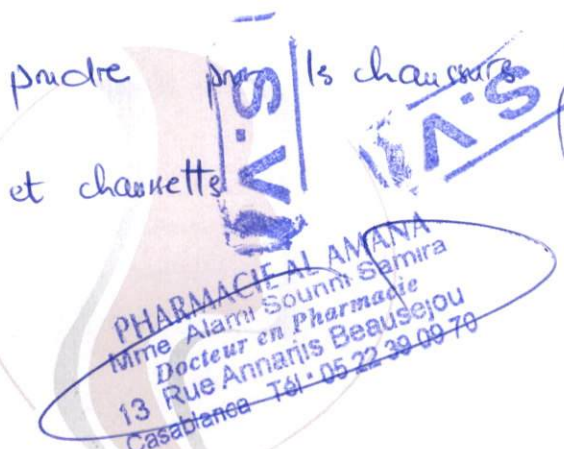 poudre pour ls chaussures
S.V
S.V
et chaussetts
PHARMACIE AL AMANA
Mme Alami Sounni Samira
Docteur en Pharmacie
13 Rue Annaris Beausejou
Casablanca Tél : 05 22 39 09 70